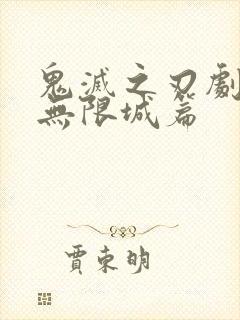 鬼滅之刃劇
無限城篇
賈東明